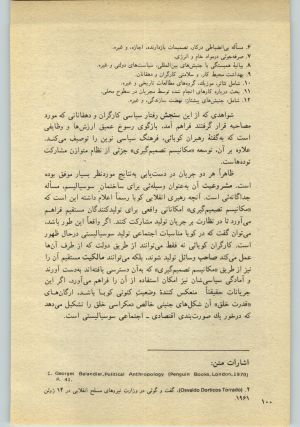 ۶. مسأله بی‌انضباطی درکار، تصمیمات بازدارنده، اجازه، و غیره.
۷. صرفه‌جوئی درمواد خام و انرژی.
۸. بیانیهٔ همبستگی با جنبش‌های بین‌المللی، سیاست‌های دولتی و غیره.
۹. بهداشت محیط کار و سلامتی کارگران و دهقانان.
۱۰. شامل: تئاتر، موزیک، گروه‌های مطالعات تاریخی و غیره.
۱۱. بحث درباره کارهای انجام شده توسط مجریان در سطوح محلی.
۱۲. شامل: جنبش‌های پیشتاز، نهضت سازندگی، و غیره.
شواهدی که از این سنجش رفتار سیاسی کارگران و دهقانانی که مورد
مصاحبه قرار گرفتند فراهم آمد، بازگوی رسوخ عمیق ارزش‌ها و وظایفی
است که به‌گفتهٔ رهبران کوبائی، فرهنگ سیاسی نوین را توصیف می‌کند.
علاوه بر آن، توسعه «مکانیسم تصمیم‌گیری» جزئی از نظام متوازن مشارکت
توده‌هاست.
ظاهراً هر دو جریان در دست‌یابی به‌نتایج موردنظر بسیار موفق بوده
است. مشروعیت آن به‌عنوان وسیله‌ئی برای ساختمان سوسیالیسم، مسألهٔ
جداگانه‌ئی است. آنچه رهبری انقلابی کوبا رسماً اعلام داشته این است که
«مکانیسم تصمیم‌گیری» امکاناتی واقعی برای تولیدکنندگان مستقیم فراهم
می‌آورد تا در نظارت بر جریان تولید مشارکت کنند. اگر واقعاً این طور باشد،
می‌توان گفت که در کوبا مناسبات اجتماعی تولید سوسیالیستی درحال ظهور
است. کارگران کوبائی نه فقط می‌توانند از طریق دولت که از طرف آن‌ها
عمل می‌کند صاحب وسائل تولید شوند، بلکه می‌توانند مالکیت مستقیم آن را
نیز از طریق «مکانیسم تصمیم‌گیری» که به‌آن دسترسی یافته‌اند به‌دست آورند
و آمادگی سیاسی‌شان نیز امکان استفاده از آن را فراهم می‌آورد. اگر این
جریانات حقیقتاً منعکس کنندهٔ وضعیت کنونی کوبا باشد، ارگان‌های
«قدرت خلق» آن شکل‌های جنینی خالص دمکراسی خلق را تشکیل می‌دهد
که درخور یک صورت‌بندی اقتصادی - اجتماعی سوسیالیستی است.
اشارات متن:
1. Georges Balandier, Political Anthropology (Penguin Books, London, 1970)
P. 42.
۲. (Osvaldo Dorticos Torrado)، گفت و گوئی در وزارت نیروهای مسلح انقلابی در ۱۳ ژوئن
۱۹۶۱.
۱۰۰